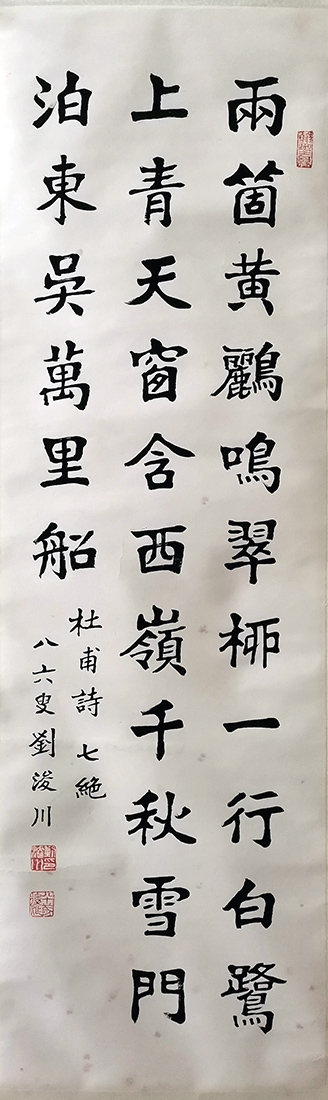 兩箇黄鸝鳴翠桺一行白鷺
上青天窗含西嶺千秋雪門
泊東吳萬里船
杜甫詩七絶
八六叟劉浚川